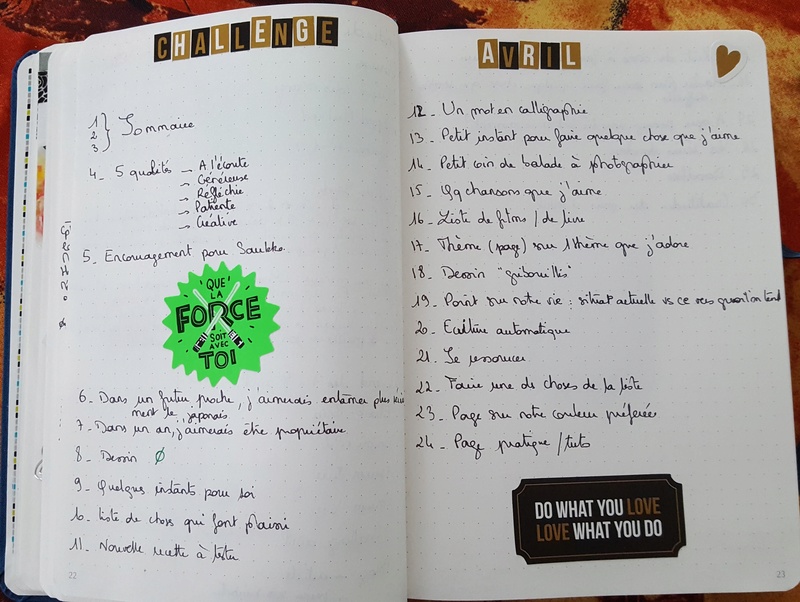 CHALLENGE
1
2
3
Sommaire
4_ 5 qualités → A l'écoute
→ Généreuse
→ Réfléchie
→ Patiente
→ Créative
5_ Encouragement pour
QUE
LA
FORCE
SOIT
AVEC
TOI
6_ Dans un futur proche, j'aimerais entamer plus
ment le japonais
7_ Dans un an, j'aimerais être propriétaire
8_ Dessin Ø
9_ Quelques instants pour soi
10_ Liste de choses qui font plaisir
11_ Nouvelle recette à tester
22
AVRIL
12_ Un mot en calligraphie
13_ Petit instant pour faire quelque chose que j'aime
14_ Petit coin de balade à photographier
15_ Qq chansons que j'aime
16_ Liste de films / de livre
17_ Thème (page) sur 1 thème que j'adore
18_ Dessin "gribouillis"
19_ Point sur notre vie : situat° actuelle vs ce vers quoi on tend
20_ Ecriture automatique
21_ Se ressourcer
22_ Faire une de choses de la liste
23_ Page sur notre couleur préférée
24_ Page pratique / tuto
DO WHAT YOU LOVE
LOVE WHAT YOU DO
23